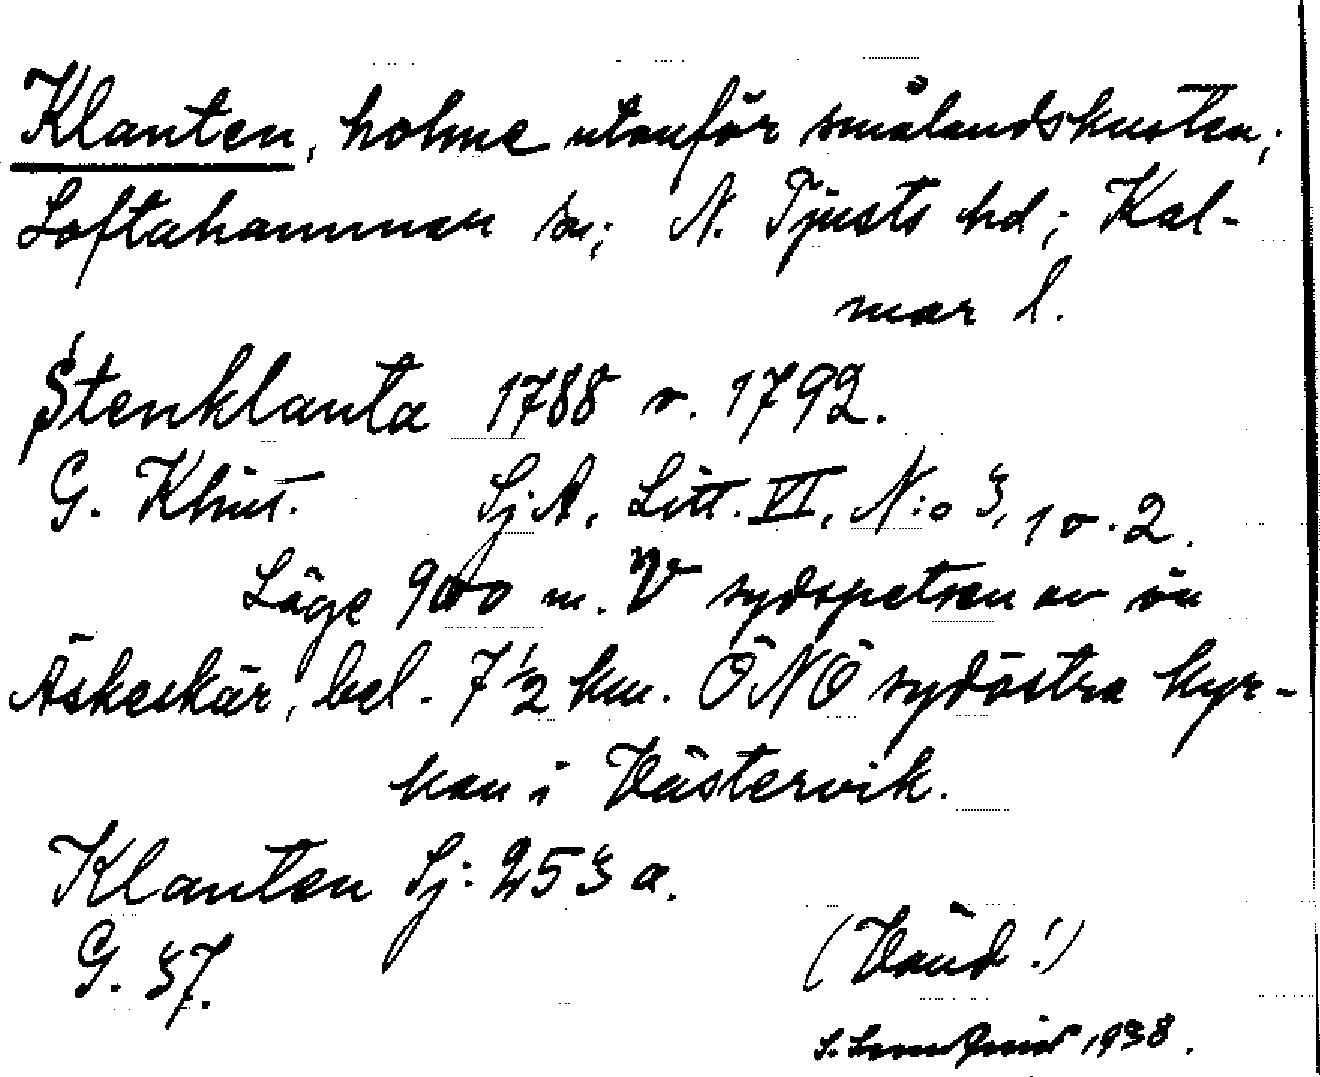 Klanten, holme utanför smålandskusten;
Loftahammar sn; N. Tjusts hd; Kal-
mar l.
Stenklanta 1788 o. 1792.
G. Klint. Sj.A, Litt. VI, N:o 3, 1 o. 2.
Läge 900 m. V sydspetsen av ön
Äskeskär, bel. 7 1/2 km. ÖNÖ sydöstra kyr-
kan i Västervik.
Klanten Sj: 253 a.
G. 37.
(Vänd!)
S. 1938.